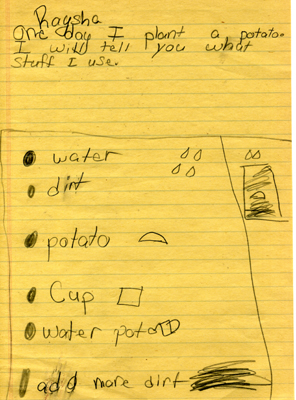 Raysha
One day I plant a potato.
I will tell you what
stuff I use.
water
dirt
potato
Cup
water potato
add more dirt